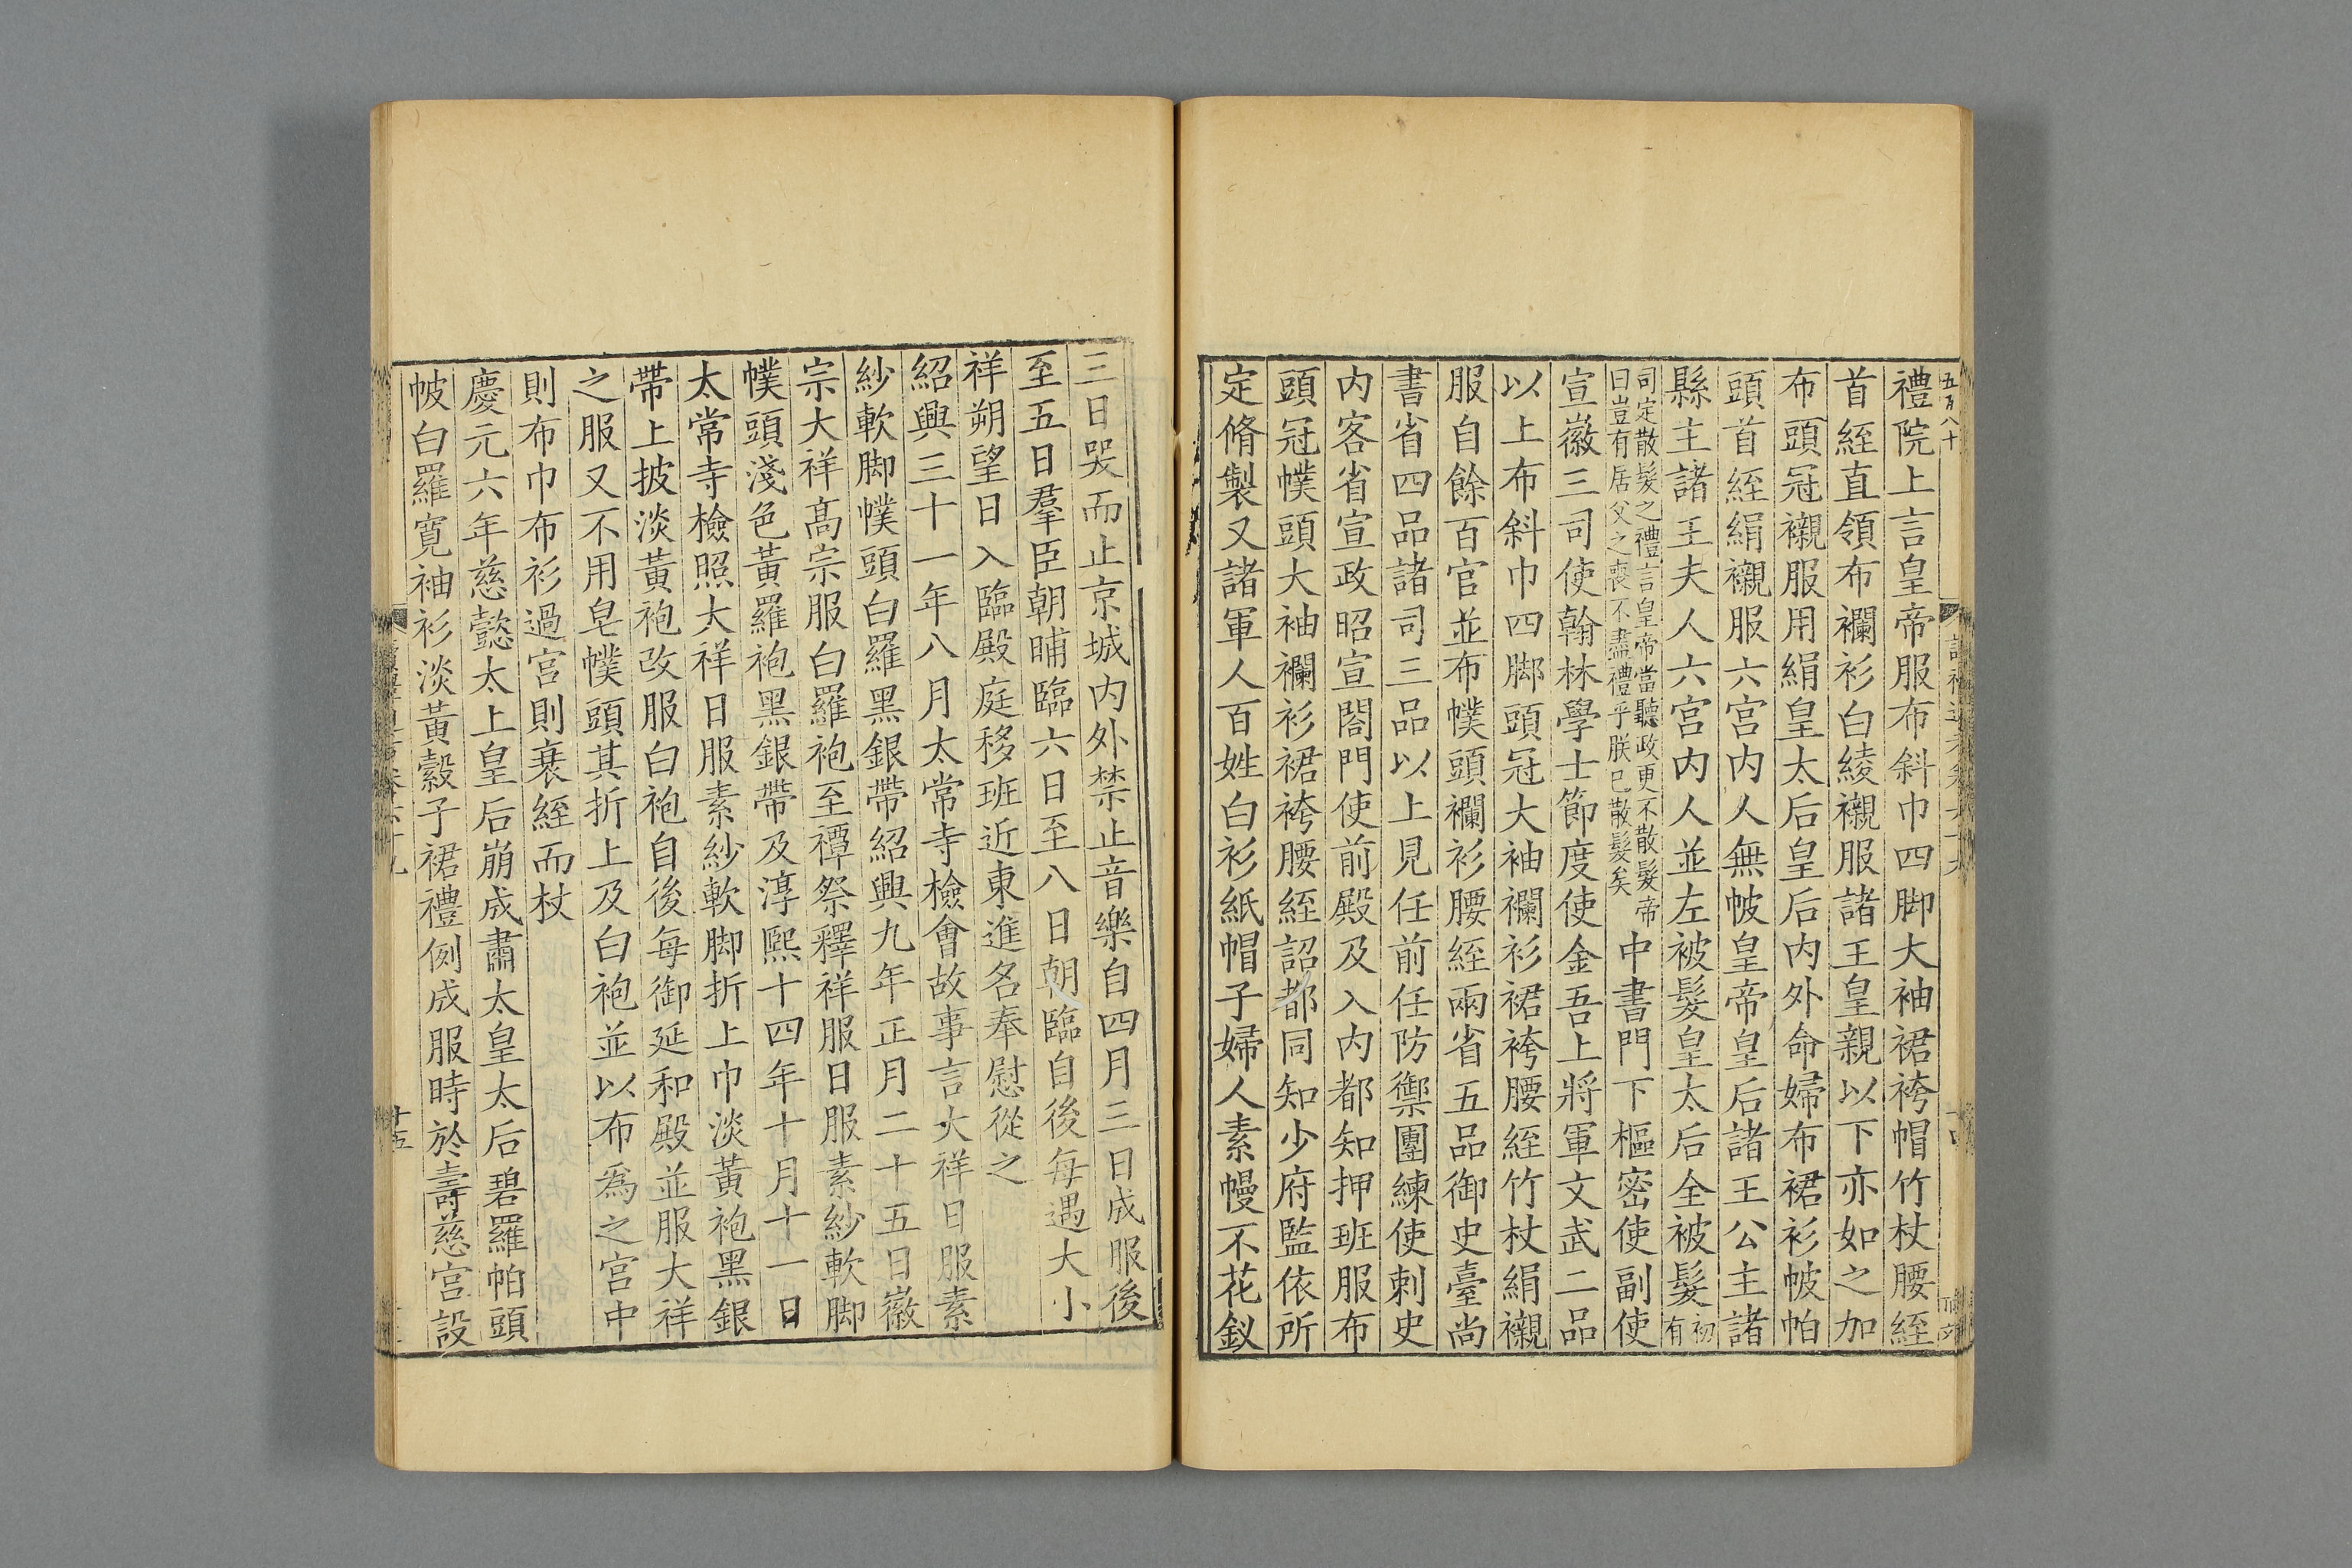 五百八十
禮院上言皇帝服布斜巾四脚大袖裙袴帽竹杖腰絰
首絰直領布襴衫白綾襯服諸王皇親以下亦如之加
布頭冠襯服用絹皇太后皇后内外命婦布裙衫帔帕
頭首絰絹襯服六宫内人無帔皇帝皇后諸王公主諸
縣主諸王夫人六宫内人並左被髮皇太后全被髮初有
司定散髮之禮言皇帝當聽政更不散髮帝
曰豈有居父之喪不盡禮乎朕已散髮矣
中書門下樞密使副使
宣徽三司使翰林學士節度使金吾上將軍文武二品
以上布斜巾四脚頭冠大袖襴衫裙袴腰絰竹杖絹襯
服自餘百官並布幞頭襴衫腰絰兩省五品御史臺尚
書省四品諸司三品以上見任前任防禦團練使刺史
内客省宣政昭宣閤門使前殿及入内都知押班服布
頭冠幞頭大袖襴衫裙袴腰絰詔都同知少府監依所
定脩製又諸軍人百姓白衫紙帽子婦人素幔不花釵
三日哭而止京城内外禁止音樂自四月三日成服後
至五日羣臣朝晡臨六日至八日朝臨自後每遇大小
祥朔望日入臨殿庭移班近東進名奉慰從之
紹興三十一年八月太常寺檢會故事言大祥日服素
紗軟脚幞頭白羅黑銀帶紹興九年正月二十五日徽
宗大祥髙宗服白羅袍至禫祭釋祥服日服素紗軟脚
幞頭淺色黃羅袍黑銀帶及淳熙十四年十月十一日
太常寺檢照大祥日服素紗軟脚折上巾淡黃袍黑銀
帶上披淡黃袍改服白袍自後每御延和殿並服大祥
之服又不用皂幞頭其折上及白袍並以布爲之宫中
則布巾布衫過宫則衰絰而杖
慶元六年慈懿太上皇后崩成肅太皇太后碧羅帕頭
帔白羅寛袖衫淡黃縠子裙禮例成服時於壽慈宫設
十五